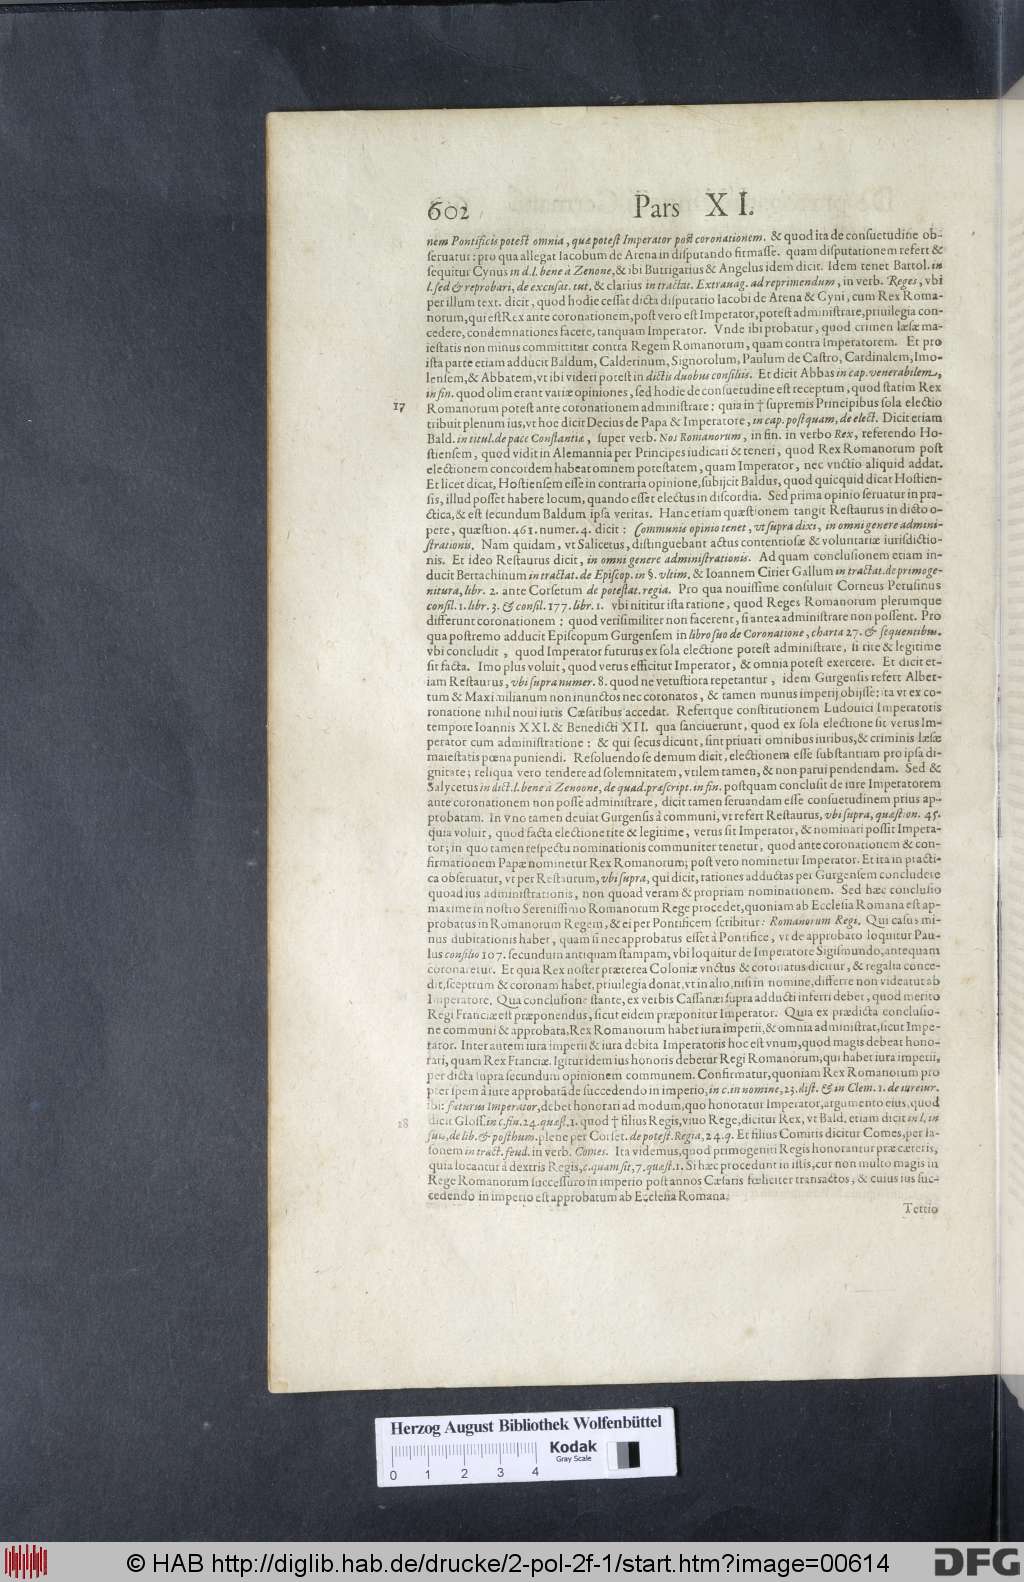 602 Pars XI.
nem Pontificis potest omnia, quæ potest Imperator post coronationem. & quod ita de consuetudine ob-
seruatur: pro qua allegat Iacobum de Arena in disputando firmasse. quam disputationem refert &
sequitur Cynus in d. l. bene à Zenone, & ibi Butrigarius & Angelus idem dicit. Idem tenet Bartol. in
l. sed & reprobari, de excusat. tut. & clarius in tractat. Extrauag. ad reprimendum, in verb. Reges, vbi
per illum text. dicit, quod hodie cessat dicta disputatio Iacobi de Arena & Cyni, cum Rex Roma-
norum, qui est Rex ante coronationem, post vero est Imperator, potest administrare, priuilegia con-
cedere, condemnationes facere, tanquam Imperator. Vnde ibi probatur, quod crimen læsæ ma-
iestatis non minus committitur contra Regem Romanorum, quam contra Imperatorem. Et pro
ista parte etiam adducit Baldum, Calderinum, Signorolum, Paulum de Castro, Cardinalem, Imo-
lensem, & Abbatem, vt ibi videri potest in dictis duobus consiliis. Et dicit Abbas in cap. venerabilem,
in fin. quod olim erant variæ opiniones, sed hodie de consuetudine est receptum, quod statim Rex
17 Romanorum potest ante coronationem administrare: quia in † supremis Principibus sola electio
tribuit plenum ius, vt hoc dicit Decius de Papa & Imperatore, in cap. post quam, de elect. Dicit etiam
Bald. in titul. de pace Constantiæ, super verb. Nos Romanorum, in fin. in verbo Rex, referendo Ho-
stiensem, quod vidit in Alemannia per Principes iudicari & teneri, quod Rex Romanorum post
electionem concordem habeat omnem potestatem, quam Imperator, nec vnctio aliquid addat.
Et licet dicat, Hostiensem esse in contraria opinione, subijcit Baldus, quod quicquid dicat Hostien-
sis, illud posset habere locum, quando esset electus in discordia. Sed prima opinio seruatur in pra-
ctica, & est secundum Baldum ipsa veritas. Hanc etiam quæstionem tangit Restaurus in dicto o-
pere, quæstion. 461. numer. 4. dicit: Communis opinio tenet, vt supra dixi, in omni genere admini-
strationis. Nam quidam, vt Salicetus, distinguebant actus contentiosæ & voluntariæ iurisdictio-
nis. Et ideo Restaurus dicit, in omni genere administrationis. Ad quam conclusionem etiam in-
ducit Bertachinum in tractat. de Episcop. in §. vltim. & Ioannem Citier Gallum in tractat. de primoge-
nitura, libr. 2. ante Corsetum de potestat. regia. Pro qua nouissime consuluit Corneus Perusinus
consil. 1. libr. 3. & consil. 177. libr. 1. vbi nititur ista ratione, quod Reges Romanorum plerumque
differunt coronationem: quod verisimiliter non facerent, si antea administrare non possent. Pro
qua postremo adducit Episcopum Gurgensem in libro suo de Coronatione, charta 27. & sequentibus.
vbi concludit, quod Imperator futurus ex sola electione potest administrare, si rite & legitime
sit facta. Imo plus voluit, quod verus efficitur Imperator, & omnia potest exercere. Et dicit et-
iam Restaurus, vbi supra numer. 8. quod ne vetustiora repetantur, idem Gurgensis refert Alber-
tum & Maximilianum non inunctos nec coronatos, & tamen munus imperij obijsse: ita vt ex co-
ronatione nihil noui iuris Cæsaribus accedat. Refertque constitutionem Ludouici Imperatoris
tempore Ioannis XXI. & Benedicti XII. qua sanciuerunt, quod ex sola electione sit verus Im-
perator cum administratione: & qui secus dicunt, sint priuati omnibus iuribus, & criminis læsæ
maiestatis pœna puniendi. Resoluendo se demum dicit, electionem esse substantiam pro ipsa di-
gnitate; reliqua vero tendere ad solemnitatem, vtilem tamen, & non parui pendendam. Sed &
Salycetus in dict. l. bene à Zenoone, de quad. præscript. in fin. postquam conclusit de iure Imperatorem
ante coronationem non posse administrare, dicit tamen seruandam esse consuetudinem prius ap-
probatam. In vno tamen deuiat Gurgensis à communi, vt refert Restaurus, vbi supra, quæstion. 45.
quia voluit, quod facta electione rite & legitime, verus sit Imperator, & nominari possit Impera-
tor; in quo tamen respectu nominationis communiter tenetur, quod ante coronationem & con-
firmationem Papæ nominetur Rex Romanorum; post vero nominetur Imperator. Et ita in practi-
ca obseruatur, vt per Restaurum, vbi supra, qui dicit, rationes adductas per Gurgensem concludere
quoad ius administrationis, non quoad veram & propriam nominationem. Sed hæc conclusio
maxime in nostro Serenissimo Romanorum Rege procedet, quoniam ab Ecclesia Romana est ap-
probatus in Romanorum Regem, & ei per Pontificem scribitur: Romanorum Regi. Qui casus mi-
nus dubitationis habet, quam si nec approbatus esset à Pontifice, vt de approbato loquitur Pau-
lus consilio 107. secundum antiquam stampam, vbi loquitur de Imperatore Sigismundo, antequam
coronaretur. Et quia Rex noster præterea Coloniæ vnctus & coronatus dicitur, & regalia conce-
dit, sceptrum & coronam habet, priuilegia donat, vt in alio, nisi in nomine, differre non videatur ab
Imperatore. Qua conclusione stante, ex verbis Cassanæi supra adducti inferri debet, quod merito
Regi Franciæ est præponendus, sicut eidem præponitur Imperator. Quia ex prædicta conclusio-
ne communi & approbata, Rex Romanorum habet iura imperii, & omnia administrat, sicut Impe-
rator. Inter autem iura imperii & iura debita Imperatoris hoc est vnum, quod magis debeat hono-
rari, quam Rex Franciæ. Igitur idem ius honoris debetur Regi Romanorum, qui habet iura imperii,
per dicta supra secundum opinionem communem. Confirmatur, quoniam Rex Romanorum pro
pter spem à iure approbatā de succedendo in imperio, in c. in nomine, 23. dist. & in Clem. 1. de iureiur.
ibi: futurus Imperator, debet honorari ad modum, quo honoratur Imperator, argumento eius, quod
18 dicit Gloss. in c. fin. 24. quæst. 1. quod † filius Regis, viuo Rege, dicitur Rex, vt Bald. etiam dicit in l. in
suis, de lib. & posthum. plene per Corset. de potest. Regia, 24. q. Et filius Comitis dicitur Comes, per Ia-
sonem in tract. feud. in verb. Comes. Ita videmus, quod primogeniti Regis honorantur præ cæteris,
quia locantur à dextris Regis, c. quam sit, 7. quæst. 1. Si hæc procedunt in istis, cur non multo magis in
Rege Romanorum successuro in imperio post annos Cæsaris fœliciter transactos, & cuius ius suc-
cedendo in imperio est approbatum ab Ecclesia Romana.
Tertio
Herzog August Bibliothek Wolfenbüttel
Kodak
Gray Scale
0 1 2 3 4
© HAB http://diglib.hab.de/drucke/2-pol-2f-1/start.htm?image=00614
DFG